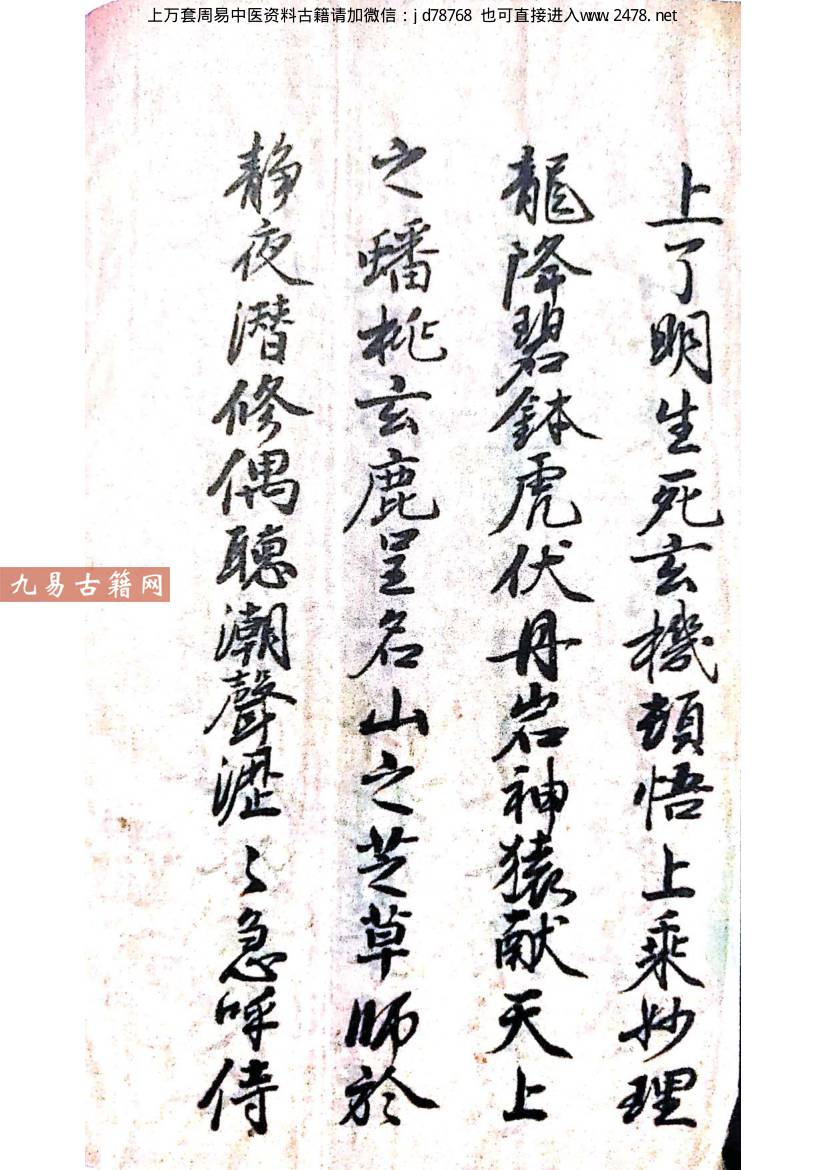 上万套周易中医资料古籍请加微信：jd78768 也可直接进入www.2478.net
上了明生死玄機頓悟上乘妙理
龍降碧鉢虎伏丹岩神猿献天上
之蟠桃玄鹿呈名山之芝草師於
静夜潛修偶聴潮聲瀝〻急呼侍
九易古籍网